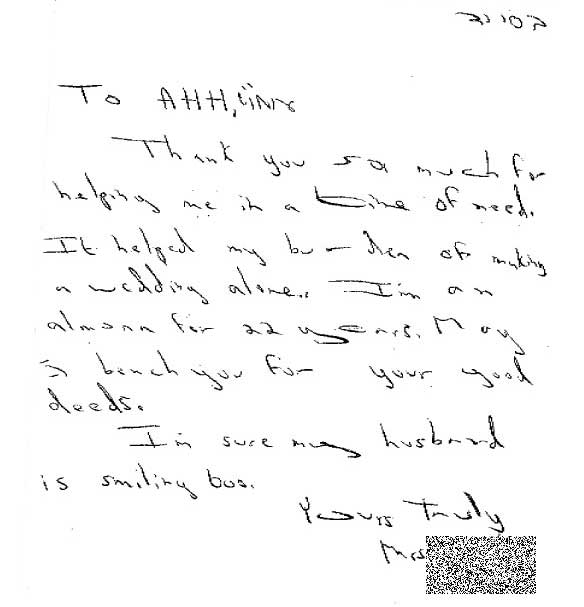 בס״ד
To
Thank you so much for
helping me in a time of need.
It helped my burden of making
a wedding alone. I'm an
almana for 22 years. May
ה' bench you for your good
deeds.
I'm sure my husband
is smiling too.
Yours Truly
Mrs